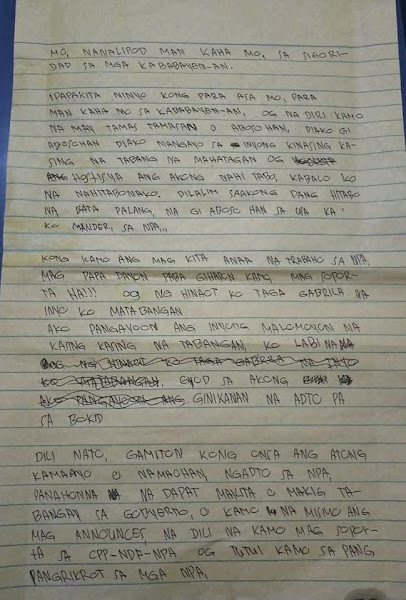 MO, NANALIPOD MAN KAHA MO, SA SIGORI-
DAD SA MGA KABABAYEN-AN.
IPAPAKITA NINYO KONG PARA ASA MO, PARA
MAN KAHA MO SA KABABAYEN-AN, OG NA DIRI KAMO
NA MAY TAMAS TAMASAN O ABOSOHAN, DIAKO GI
ABOSOHAN DIAKO NANGAYO SA INYONG KINASING KA-
SING NA TABANG NA MAHATAGAN OG
HOSTISYA ANG AKONG NAHI TABO, KABALO KO
NA NAHITABONAKO. DILALIM SAAKONG PANG HITABO
NA BATA PALANG, NA GI ABOSO HAN SA USA KA
KO MANDER, SA NPA...
KONG IKAMO ANG MAG KITA ANAA NA TRABAHO SA NPA,
MAG PAPA DAYON PABA GIHAPON KAMO MAG SOPOR-
TA HA!!! OG NG HINAOT KO TAGA GABRILA NA
INYO KO MATABANGAN
AKO PANGAYOON ANG INYONG MALOMOYON NA
KASING KASING NA TABANGAN, KO LABI NA
NG HINAOT KO TAGA GABRILA NA INYO
KO MATABANGAN, GYOD SA AKONG
AKO PANGAYOON ANG GINIKANAN NA ADTO PA
SA BOKID
DILI NATO, GAMITON KONG ONSA ANG ATONG
KAMAAYO O NAMAOHAN, NGADTO SA NPA,
PANAHONNA NA DAPAT MAKITA O MAKIG TA-
BANGAY SA GOBYERTO, O KAMO NA MISMO ANG
MAG ANNOUNCES, NA DILI NA KAMO MAG SOPOR-
TA SA CPP-NDF-NPA OG TUTUL KAMO SA PANG
PANGRIKROT SA MGA NPA,